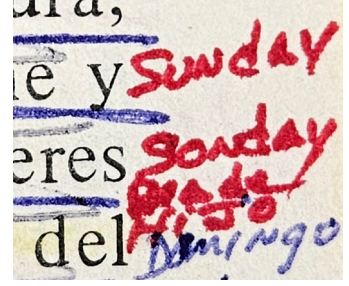 ura,
ie y Sunday
eres Sonday
del
Domingo